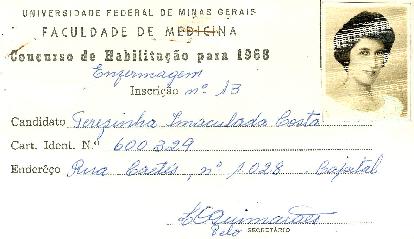 UNIVERSIDADE FEDERAL DE MINAS GERAIS
FACULDADE DE MEDICINA
Concurso de Habilitação para 1968
Enfermagem
Inscrição nº 13
Candidato Terezinha Imaculada Costa
Cart. Ident. N.º 600329
Enderêço Rua Caetés, nº 1028 - Capital
Guimarães
Pelo SECRETÁRIO